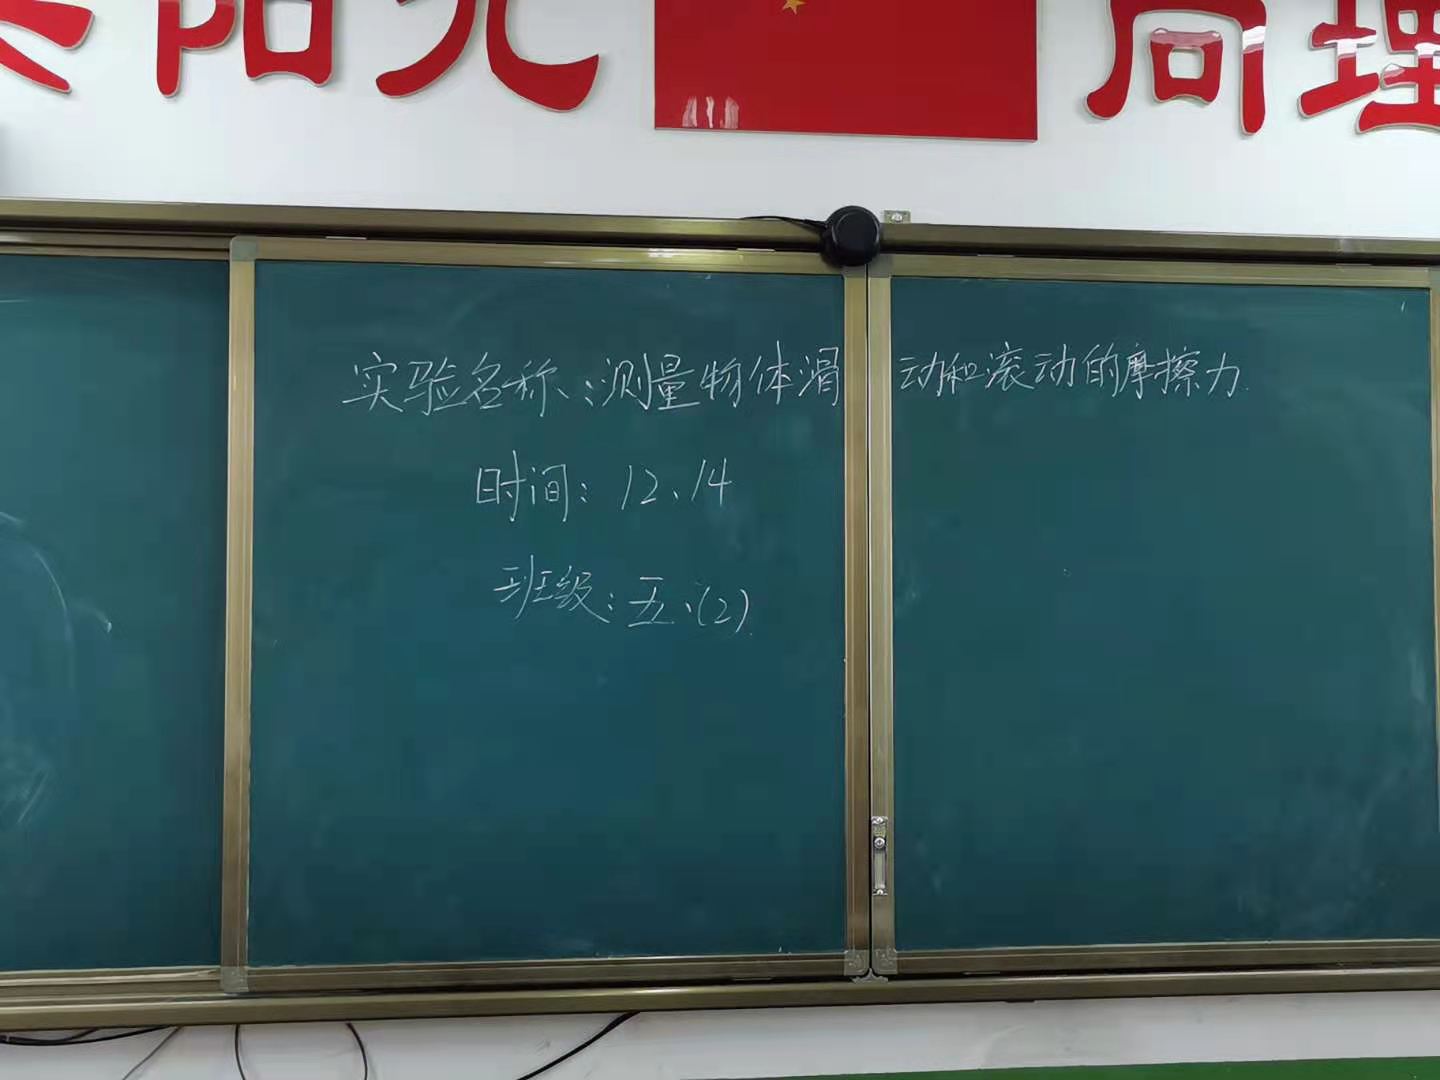 阳光
尚理
实验名称:测量物体滑动和滚动的摩擦力.
时间:12、14
班级:五、(2).